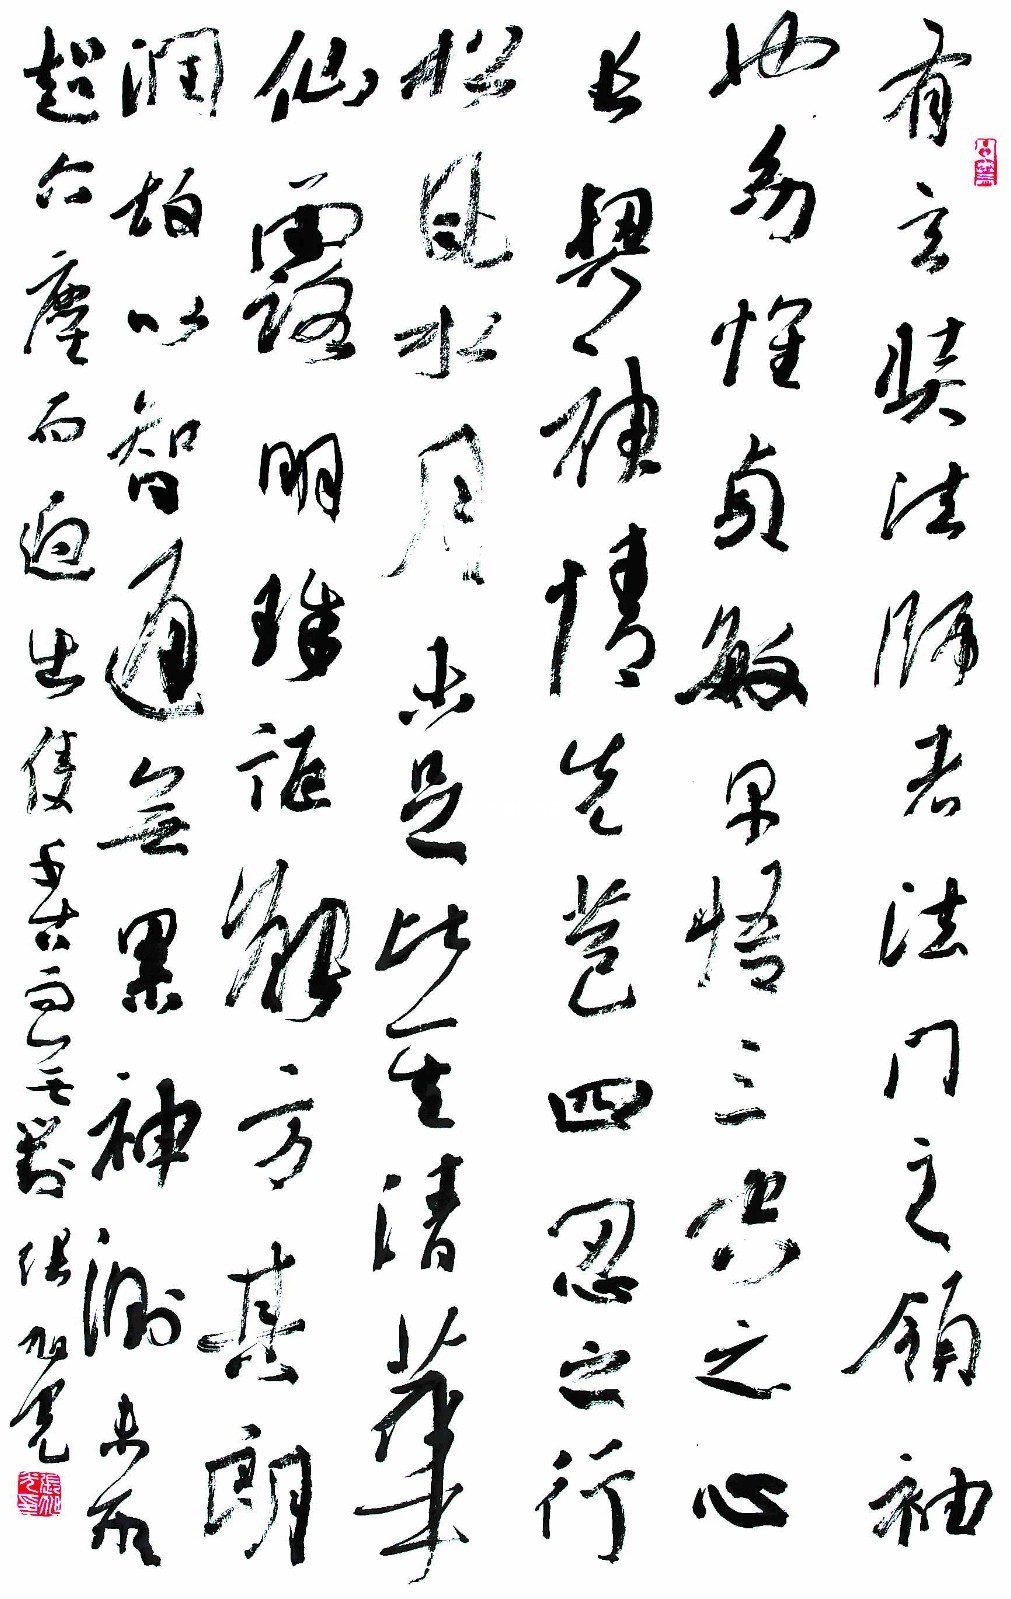 有玄奘法師者法門之領袖
也幼懷貞敏早悟三空之心
長契神情先苞四忍之行
松風水月未足比其清華
仙露明珠詎能方其朗
潤故以智通無累神測未形
超六塵而迥出隻千古而無對 張旭光